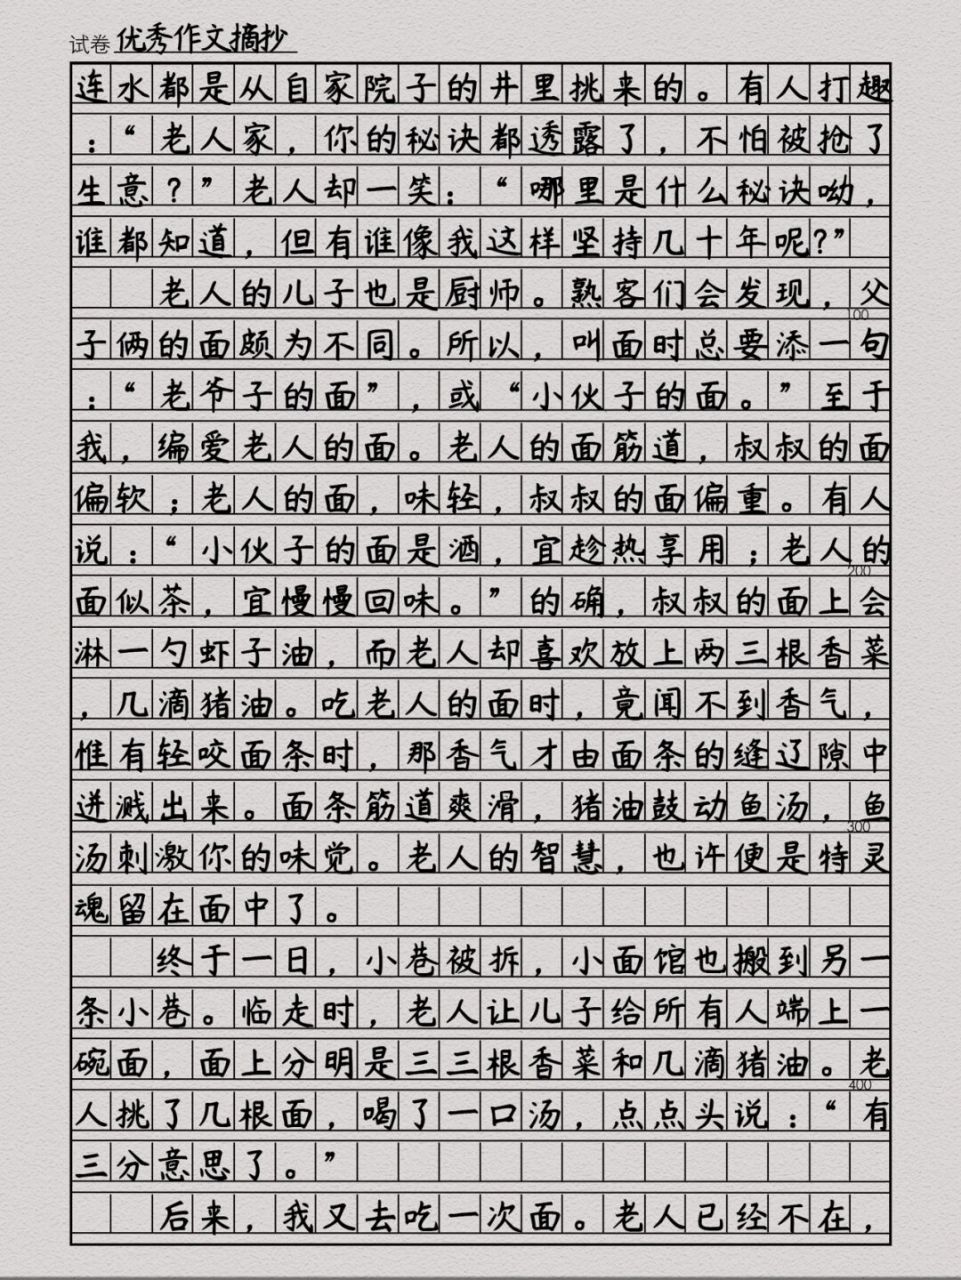 试卷 优秀作文摘抄
连水都是从自家院子的井里挑来的。有人打趣
：“老人家，你的秘诀都透露了，不怕被抢了
生意？”老人却一笑：“哪里是什么秘诀呦，
谁都知道，但有谁像我这样坚持几十年呢？”
老人的儿子也是厨师。熟客们会发现，父
100
子俩的面颇为不同。所以，叫面时总要添一句
：“老爷子的面”，或“小伙子的面。”至于
我，编爱老人的面。老人的面筋道，叔叔的面
偏软；老人的面，味轻，叔叔的面偏重。有人
说：“小伙子的面是酒，宜趁热享用；老人的
200
面似茶，宜慢慢回味。”的确，叔叔的面上会
淋一勺虾子油，而老人却喜欢放上两三根香菜
，几滴猪油。吃老人的面时，竟闻不到香气，
惟有轻咬面条时，那香气才由面条的缝辽隙中
迸溅出来。面条筋道爽滑，猪油鼓动鱼汤，鱼
300
汤刺激你的味觉。老人的智慧，也许便是特灵
魂留在面中了。
终于一日，小巷被拆，小面馆也搬到另一
条小巷。临走时，老人让儿子给所有人端上一
碗面，面上分明是三三根香菜和几滴猪油。老
400
人挑了几根面，喝了一口汤，点点头说：“有
三分意思了。”
后来，我又去吃一次面。老人已经不在，